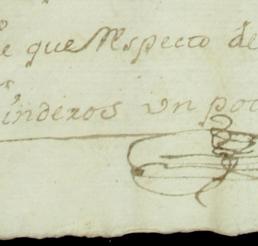 e que Respecto de
inderos un poc